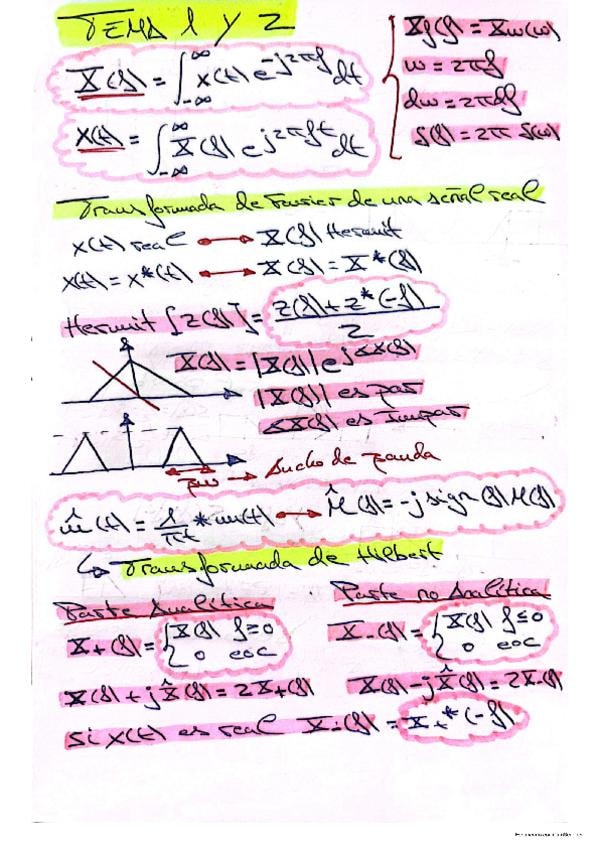 TEMA 1 Y 2
X(f) = ∫_{-∞}^{∞} x(t) e^{-j2πf} dt
x(t) = ∫_{-∞}^{∞} X(f) e^{j2πft} dt
Xf(f) = Xw(w)
w = 2πf
dw = 2πdf
δ(f) = 2π δ(w)
Transformada de Fourier de una señal real
x(t) real ↔ X(f) Hermit
x(t) = x*(t) ↔ X(f) = X*(f)
Hermit [Z(f)] = (Z(f) + Z*(-f)) / 2
X(f) = |X(f)| e^{j∡X(f)}
|X(f)| es par
∡X(f) es impar
BW → Ancho de banda
m̂(t) = 1/πt * m(t) ↔ M̂(f) = -j sign(f) M(f)
↳ Transformada de Hilbert
Parte Analítica
X+(f) = { X(f) f≥0
0 eoc
X(f) + jX̂(f) = 2X+(f)
Parte no Analítica
X-(f) = { X(f) f≤0
0 eoc
X(f) - jX̂(f) = 2X-(f)
Si x(t) es real X-(f) = X+*(-f)